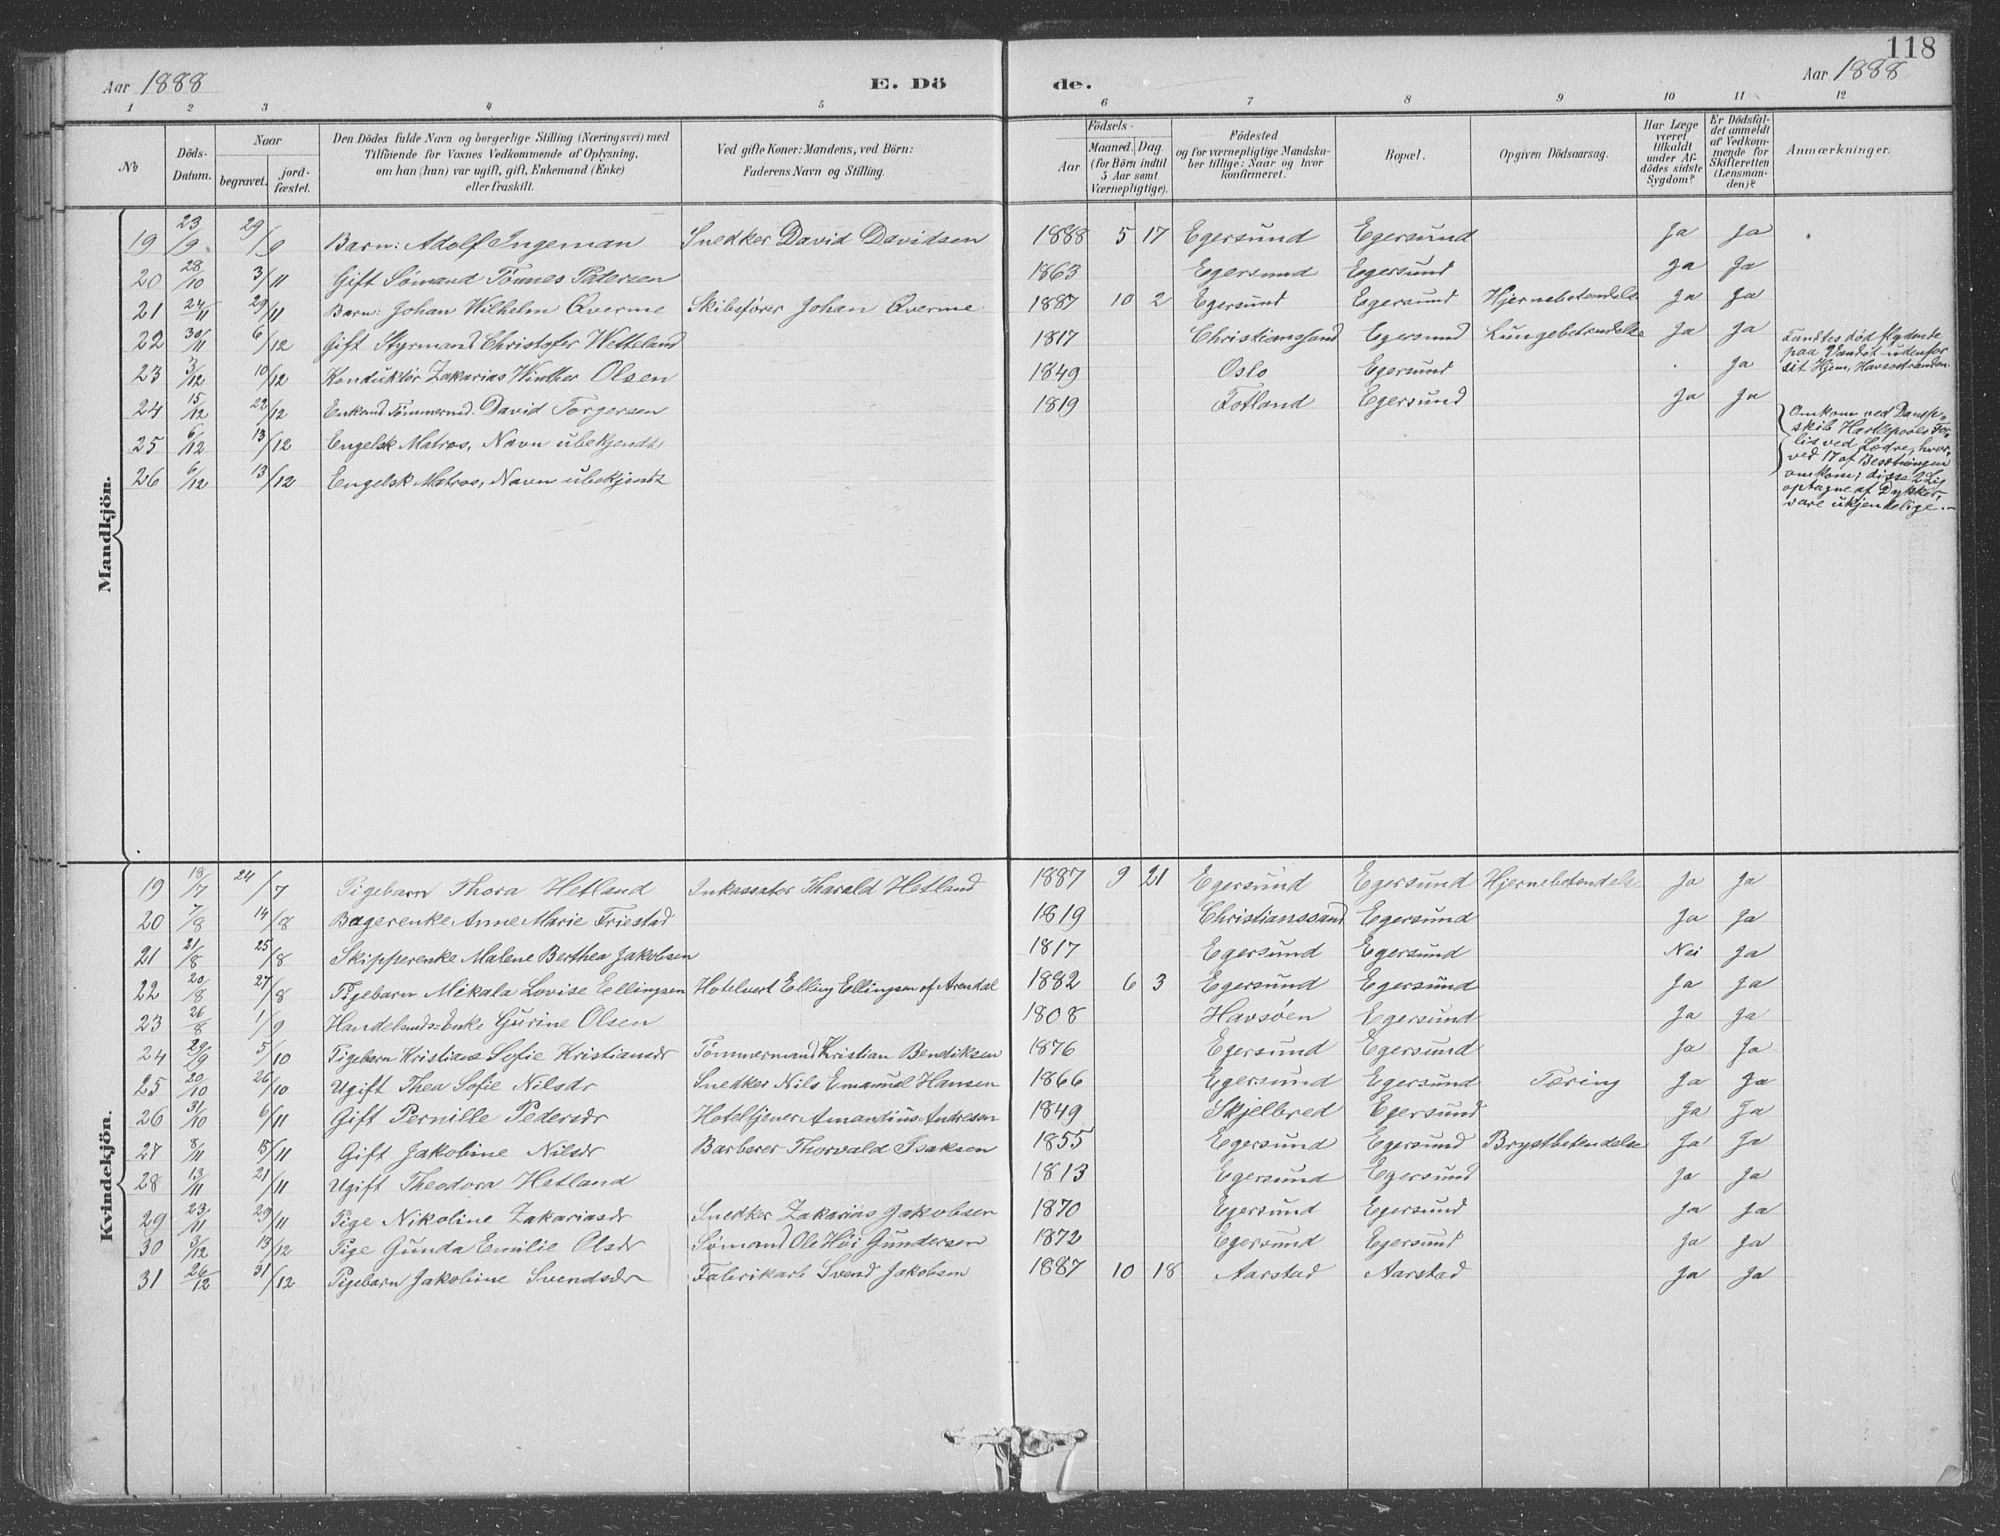 118
Aar 1888
E. Dö
de.
Aar 1888
1 2 3 4 5 6 7 8 9 10 11 12
No
Döds-Datum.
Naar
begravet.
jord-fæstet.
Den Dödes fulde Navn og borgerlige Stilling (Næringsvei) med
Tilföiende for Voxnes Vedkommende af Oplysning,
om han (hun) var ugift, gift, Enkemand (Enke)
eller fraskilt.
Ved gifte Koner: Mandens, ved Börn:
Faderens Navn og Stilling.
Födsels-
Aar
Maaned. Dag.
(for Börn indtil
5 Aar samt
Værnepligtige).
Födested
og for værnepligtige Mandska-
ber tillige: Naar og hvor
konfirmeret.
Bopæl.
Opgiven Dödsaarsag.
Har Læge
været
tilkaldt
under Af-
dödes sidste
Sygdom?
Er Dödsfal-
det anmeldt
af Vedkom-
mende for
Skifteretten
(Lensman-
den)?
Anmærkninger.
Mandkjön.
19 23/9 29/9 Barn: Adolf Ingeman Snedker David Davidsen 1888 5 17 Egersund Egersund Ja Ja
20 28/10 3/11 Gift Sømand Tönnes Petersen 1863 Egersund Egersund Ja Ja
21 24/11 29/11 Barn: Johan Wilhelm Qverme Skibsfører Johan Qverme 1887 10 2 Egersund Egersund Hjernebetendelse Ja Ja
22 30/11 6/12 Gift Styrmand Christofer Wetteland 1817 Christianssand Egersund Lungebetendelse Ja Ja
23 3/12 10/12 Konduktör Zakarias Winther Olsen 1849 Oslo Egersund Ja Fandtes död flydende
paa Vandet udenfor
sit Hjem, Havsøstranden
24 15/12 22/12 Enkemd Tømmermd. David Torgersen 1819 Fotland Egersund Ja Ja
25 6/12 13/12 Engelsk Matros, Navn ubekjendt
26 6/12 13/12 Engelsk Matros, Navn ubekjendt
Omkom ved Dampskib Hartlepools For-
lis ved Lædre, hvor-
ved 17 af Besætningen
omkom; disse 2 Lig
optagne af Dykker,
vare ukjendelige.
Kvindekjön.
19 18/7 24/7 Pigebarn Thora Hetland Inkassator Tharald Hetland 1887 9 21 Egersund Egersund Hjernebetendelse Ja Ja
20 7/8 14/8 Bagerenke Anne Marie Friestad 1819 Christianssand Egersund Ja Ja
21 21/8 25/8 Skipperenke Malene Berthea Jakobsen 1817 Egersund Egersund Nei Ja
22 20/8 27/8 Pigebarn Mikala Lovise Ellingsen Hotelvert Elling Ellingsen af Arendal 1882 6 3 Egersund Egersund Ja Ja
23 26/8 1/9 Handelsmds=Enke Gurine Olsen 1808 Havsöen Egersund Ja Ja
24 29/9 5/10 Pigebarn Kristiane Sofie Kristiansdr Tømmermand Kristian Bendiksen 1876 Egersund Egersund Ja Ja
25 20/10 26/10 Ugift Thea Sofie Nilsdr Snedker Nils Emanuel Hansen 1866 Egersund Egersund Tæring Ja Ja
26 31/10 6/11 Gift Pernille Pedersdr Hoteltjener Amandius Andresen 1849 Skjelbred Egersund Ja Ja
27 8/11 15/11 Gift Jakobine Nilsdr Barberer Thorvald Isaksen 1855 Egersund Egersund Brystbetendelse Ja Ja
28 13/11 21/11 Ugift Theodora Hetland 1813 Egersund Egersund Ja Ja
29 23/11 29/11 Pige Nikoline Zakariasdr Snedker Zakarias Jakobsen 1870 Egersund Egersund Ja Ja
30 3/12 13/12 Pige Gunda Emilie Olsdr Sømand Ole Höi Gundersen 1872 Egersund Egersund Ja Ja
31 26/12 31/12 Pigebarn Jakobine Svendsdr Fabrikarb Svend Jakobsen 1887 10 18 Aarstad Aarstad Ja Ja